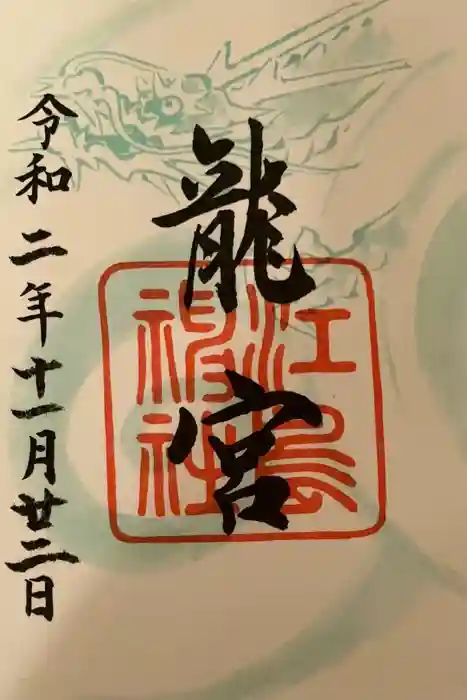 龍宮
江島
神社
令和二年十一月廿二日